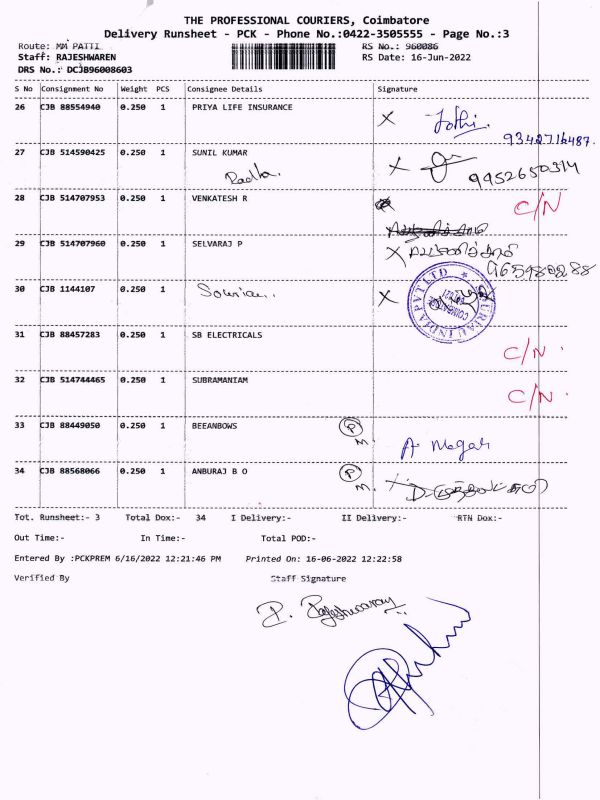 THE PROFESSIONAL COURIERS, Coimbatore
Delivery Runsheet - PCK - Phone No.:0422-3505555 - Page No.:3
Route: MM PATTI RS No.: 960086
Staff: RAJESHWAREN RS Date: 16-Jun-2022
DRS No.: DCJB96008603
S No Consignment No Weight PCS Consignee Details Signature
26 CJB 88554940 0.250 1 PRIYA LIFE INSURANCE X Jothi.
9342716487.
27 CJB 514590425 0.250 1 SUNIL KUMAR X
Radha. 9952650314
28 CJB 514707953 0.250 1 VENKATESH R C/N
29 CJB 514707960 0.250 1 SELVARAJ P X
30 CJB 1144107 0.250 1 X
31 CJB 88457283 0.250 1 SB ELECTRICALS C/N
32 CJB 514744465 0.250 1 SUBRAMANIAM C/N
33 CJB 88449050 0.250 1 BEEANBOWS P
M. A
34 CJB 88568066 0.250 1 ANBURAJ B O P
M. X
Tot. Runsheet:- 3 Total Dox:- 34 I Delivery:- II Delivery:- RTN Dox:-
Out Time:- In Time:- Total POD:-
Entered By :PCKPREM 6/16/2022 12:21:46 PM Printed On: 16-06-2022 12:22:58
Verified By Staff Signature
P. Rajeshwaran